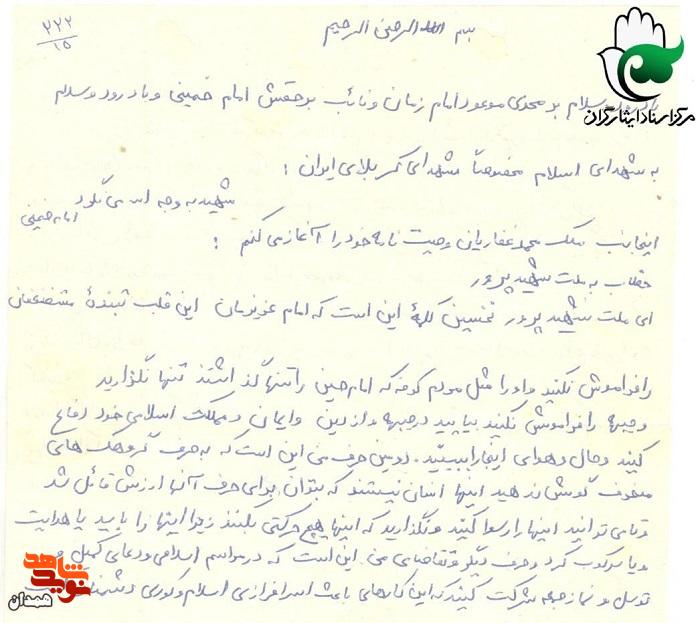 ۲۲۲
۱۵
بسم الله الرحمن الرحیم
مرکز اسناد ایثارگران
با درود و سلام بر مهدی موعود امام زمان و نائب برحقش امام خمینی و با درود و سلام
به شهدای اسلام مخصوصاً شهدای کربلای ایران :
شهید به وجه الله می نگرد
امام خمینی
اینجانب ملک محمد غفاریان وصیت نامه خود را آغاز می کنم :
خطاب به ملت شهید پرور
ای ملت شهید پرور نخستین گلهٔ این است که امام عزیزمان این قلب تپندهٔ مستضعفان
را فراموش نکنید و او را مثل مردم کوفه که امام حسین را تنها گذاشتند تنها نگذارید
و جبهه را فراموش نکنید بیایید در جبهه و از دین و ایمان و مملکت اسلامی خود دفاع
کنید و حال و هوای اینجا را ببینید. دومین حرف من این است که به حرف گروهک های
منحرف گوش ندهید اینها انسان نیستند که بتوان برای حرف آنها ارزش قائل شد
و تا می توانید اینها را رسوا کنید و نگذارید که اینها هیچ حرکتی بکنند زیرا اینها را باید یا هدایت
و یا سرکوب کرد و حرف دیگر و تقاضای من این است که در مراسم اسلامی و دعای کمیل و
توسل و نماز جمعه شرکت کنید که این کارهای باعث سرافرازی اسلام و کوری دشمنان
نوید شاهد
همدان